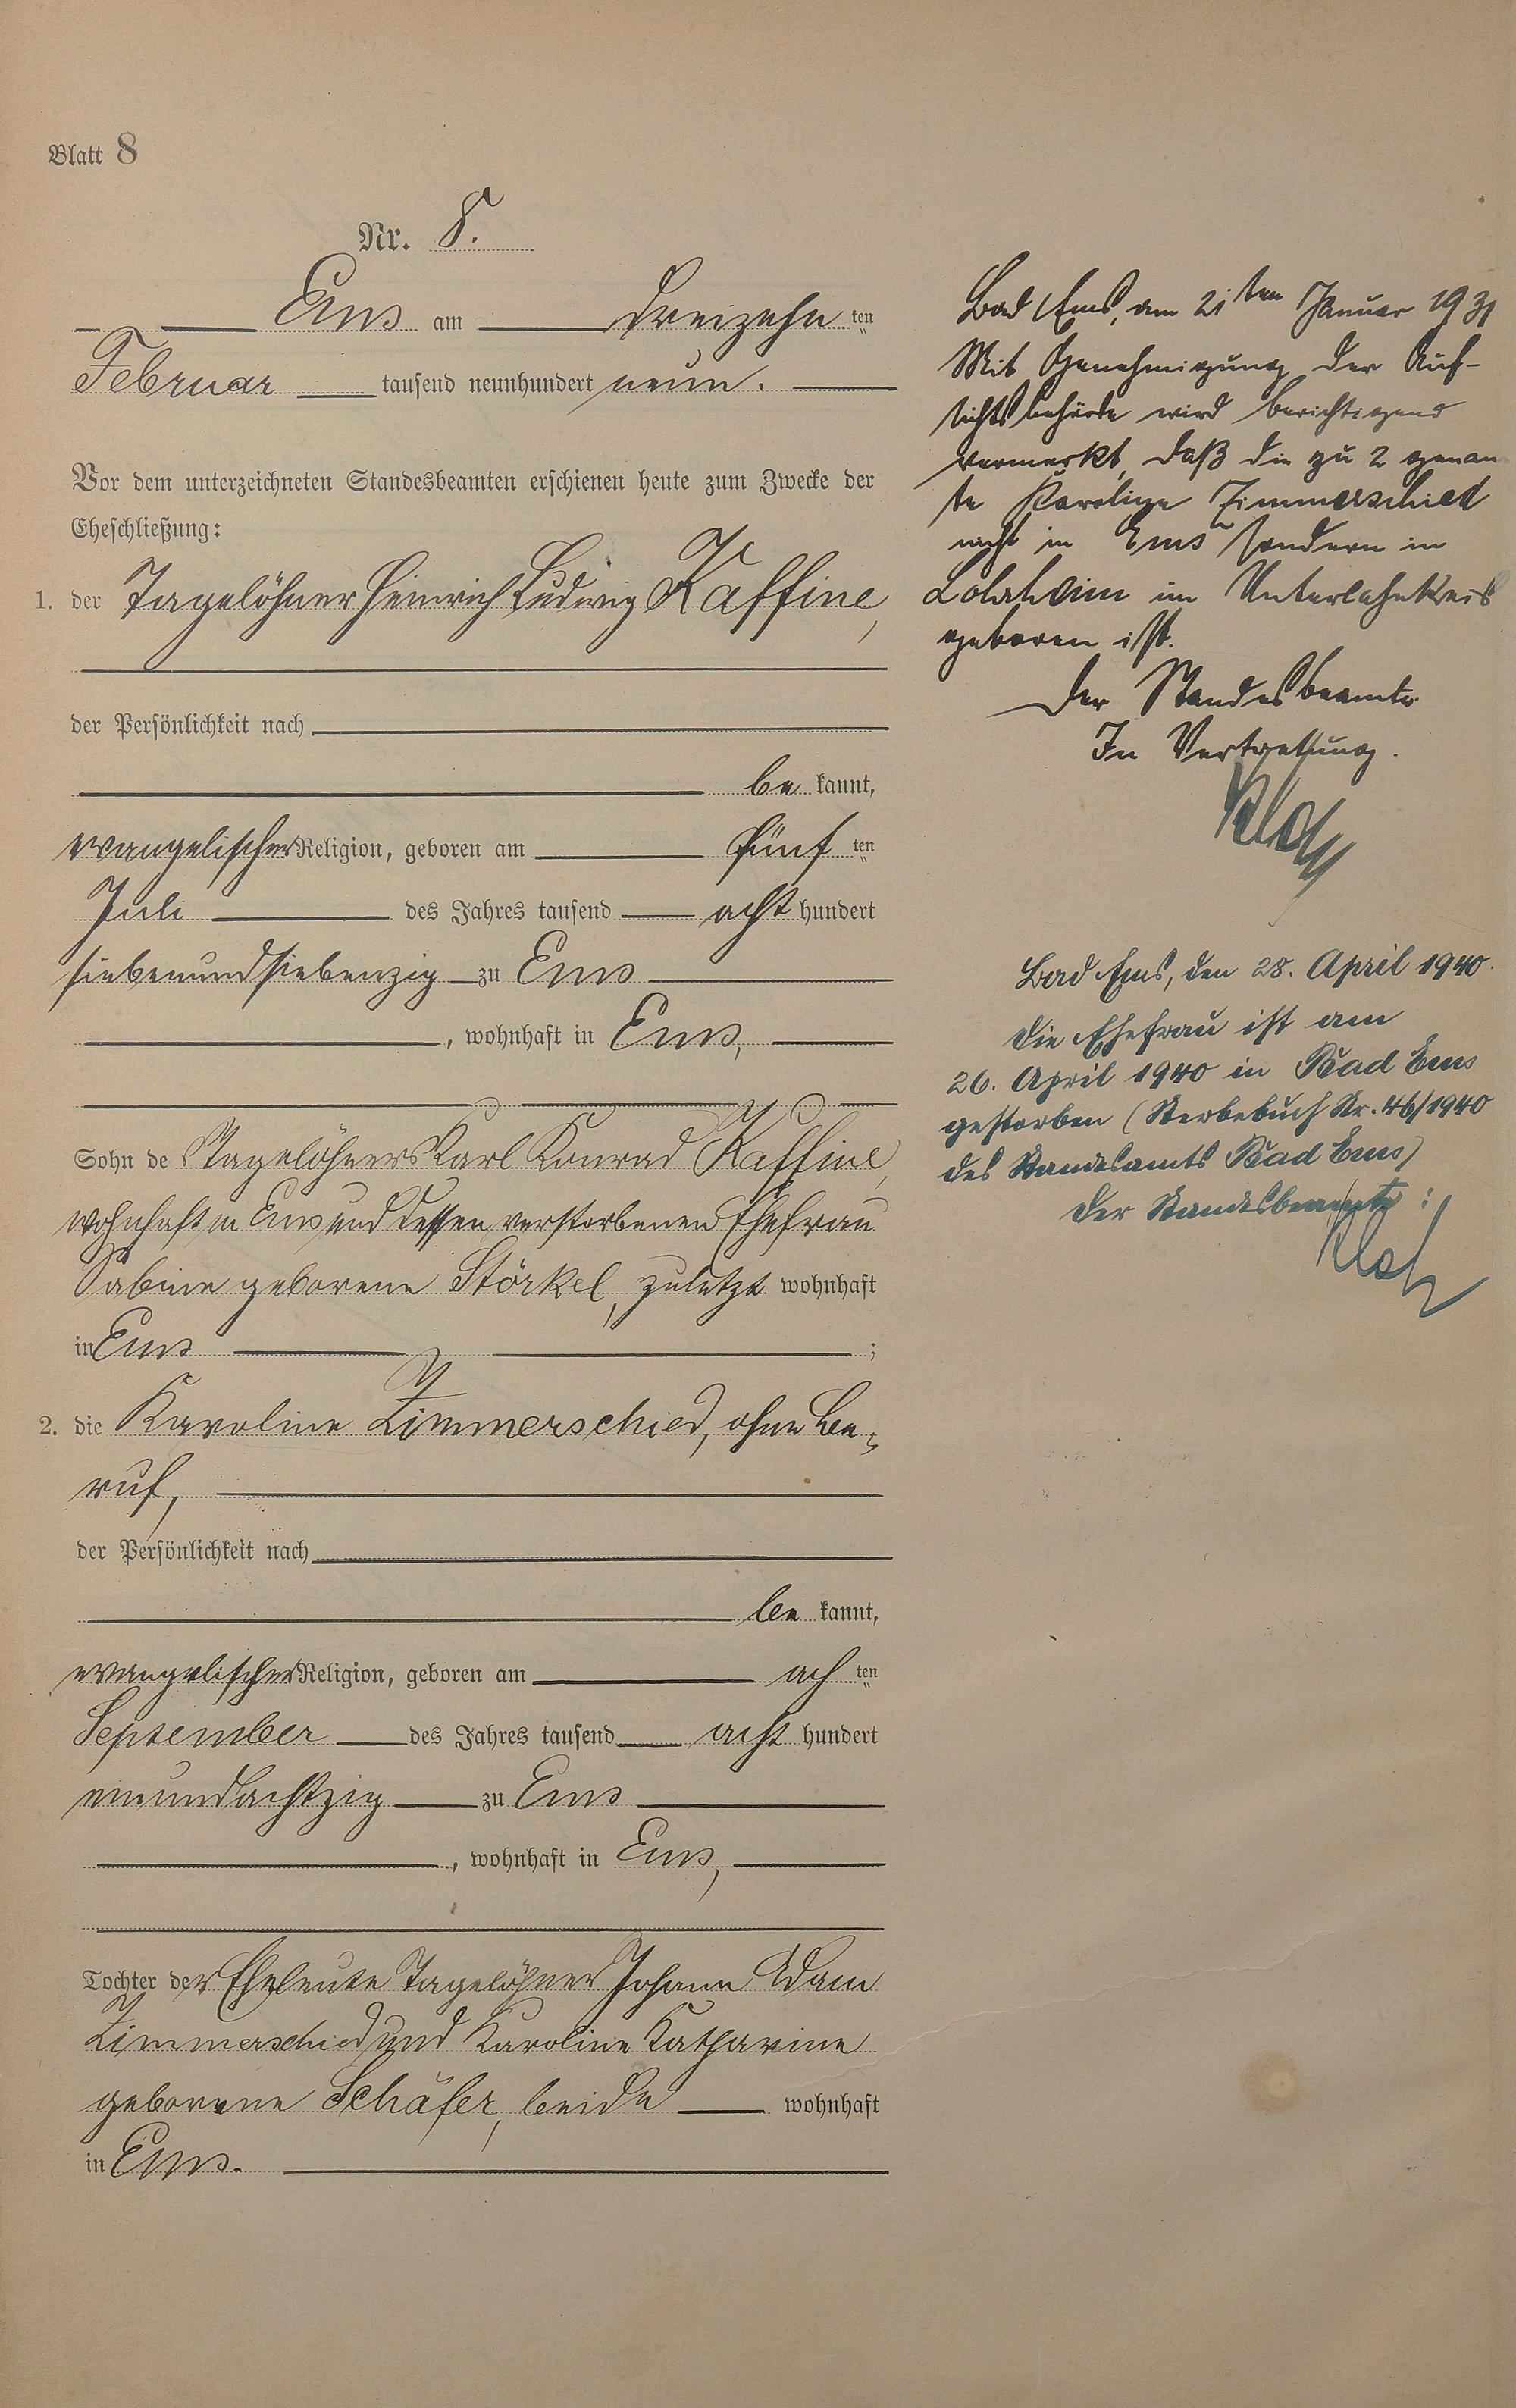 Blatt 8
Nr. 8.
Ems am dreizehnten
Februar tausend neunhundert neun.
Vor dem unterzeichneten Standesbeamten erschienen heute zum Zwecke der
Eheschließung:
1. der Tagelöhner Heinrich Ludwig Kaffine,
der Persönlichkeit nach
be kannt,
evangelischer Religion, geboren am fünf ten
Juli des Jahres tausend acht hundert
siebenundsiebenzig zu Ems
, wohnhaft in Ems,
Sohn des Tagelöhners Karl Konrad Kaffine,
wohnhaft in Ems und dessen verstorbenen Ehefrau
Sabine geborene Störkel, zuletzt wohnhaft
in Ems ;
2. die Karoline Zimmerschied, ohne Be-
ruf,
der Persönlichkeit nach
be kannt,
evangelischer Religion, geboren am ach ten
September des Jahres tausend acht hundert
einundachtzig zu Ems
, wohnhaft in Ems,
Tochter der Eheleute Tagelöhner Johann Adam
Zimmerschied und Karoline Katharine
geborene Schäfer, beide wohnhaft
in Ems.
Bad Ems, am 21ten Januar 1931
Mit Genehmigung der Auf-
sichtsbehörde wird berichtigend
vermerkt, daß die zu 2 genan
te Karoline Zimmerschied
nicht in Ems sondern in
Lohrheim im Unterlahnkreis
geboren ist.
Der Standesbeamte
In Vertretung.
Klotz
Bad Ems, den 28. April 1940.
Die Ehefrau ist am
26. April 1940 in Bad Ems
gestorben (Sterbebuch Nr. 46/1940
des Standesamts Bad Ems)
Der Standesbeamte:
Klotz